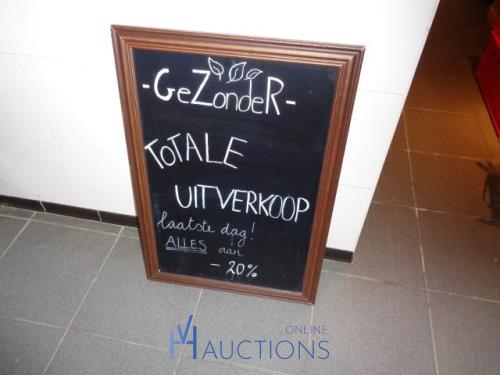 -GeZondeR-
TOTALE
UITVERKOOP
laatste dag!
ALLES aan
- 20%
VH ONLINE
AUCTIONS